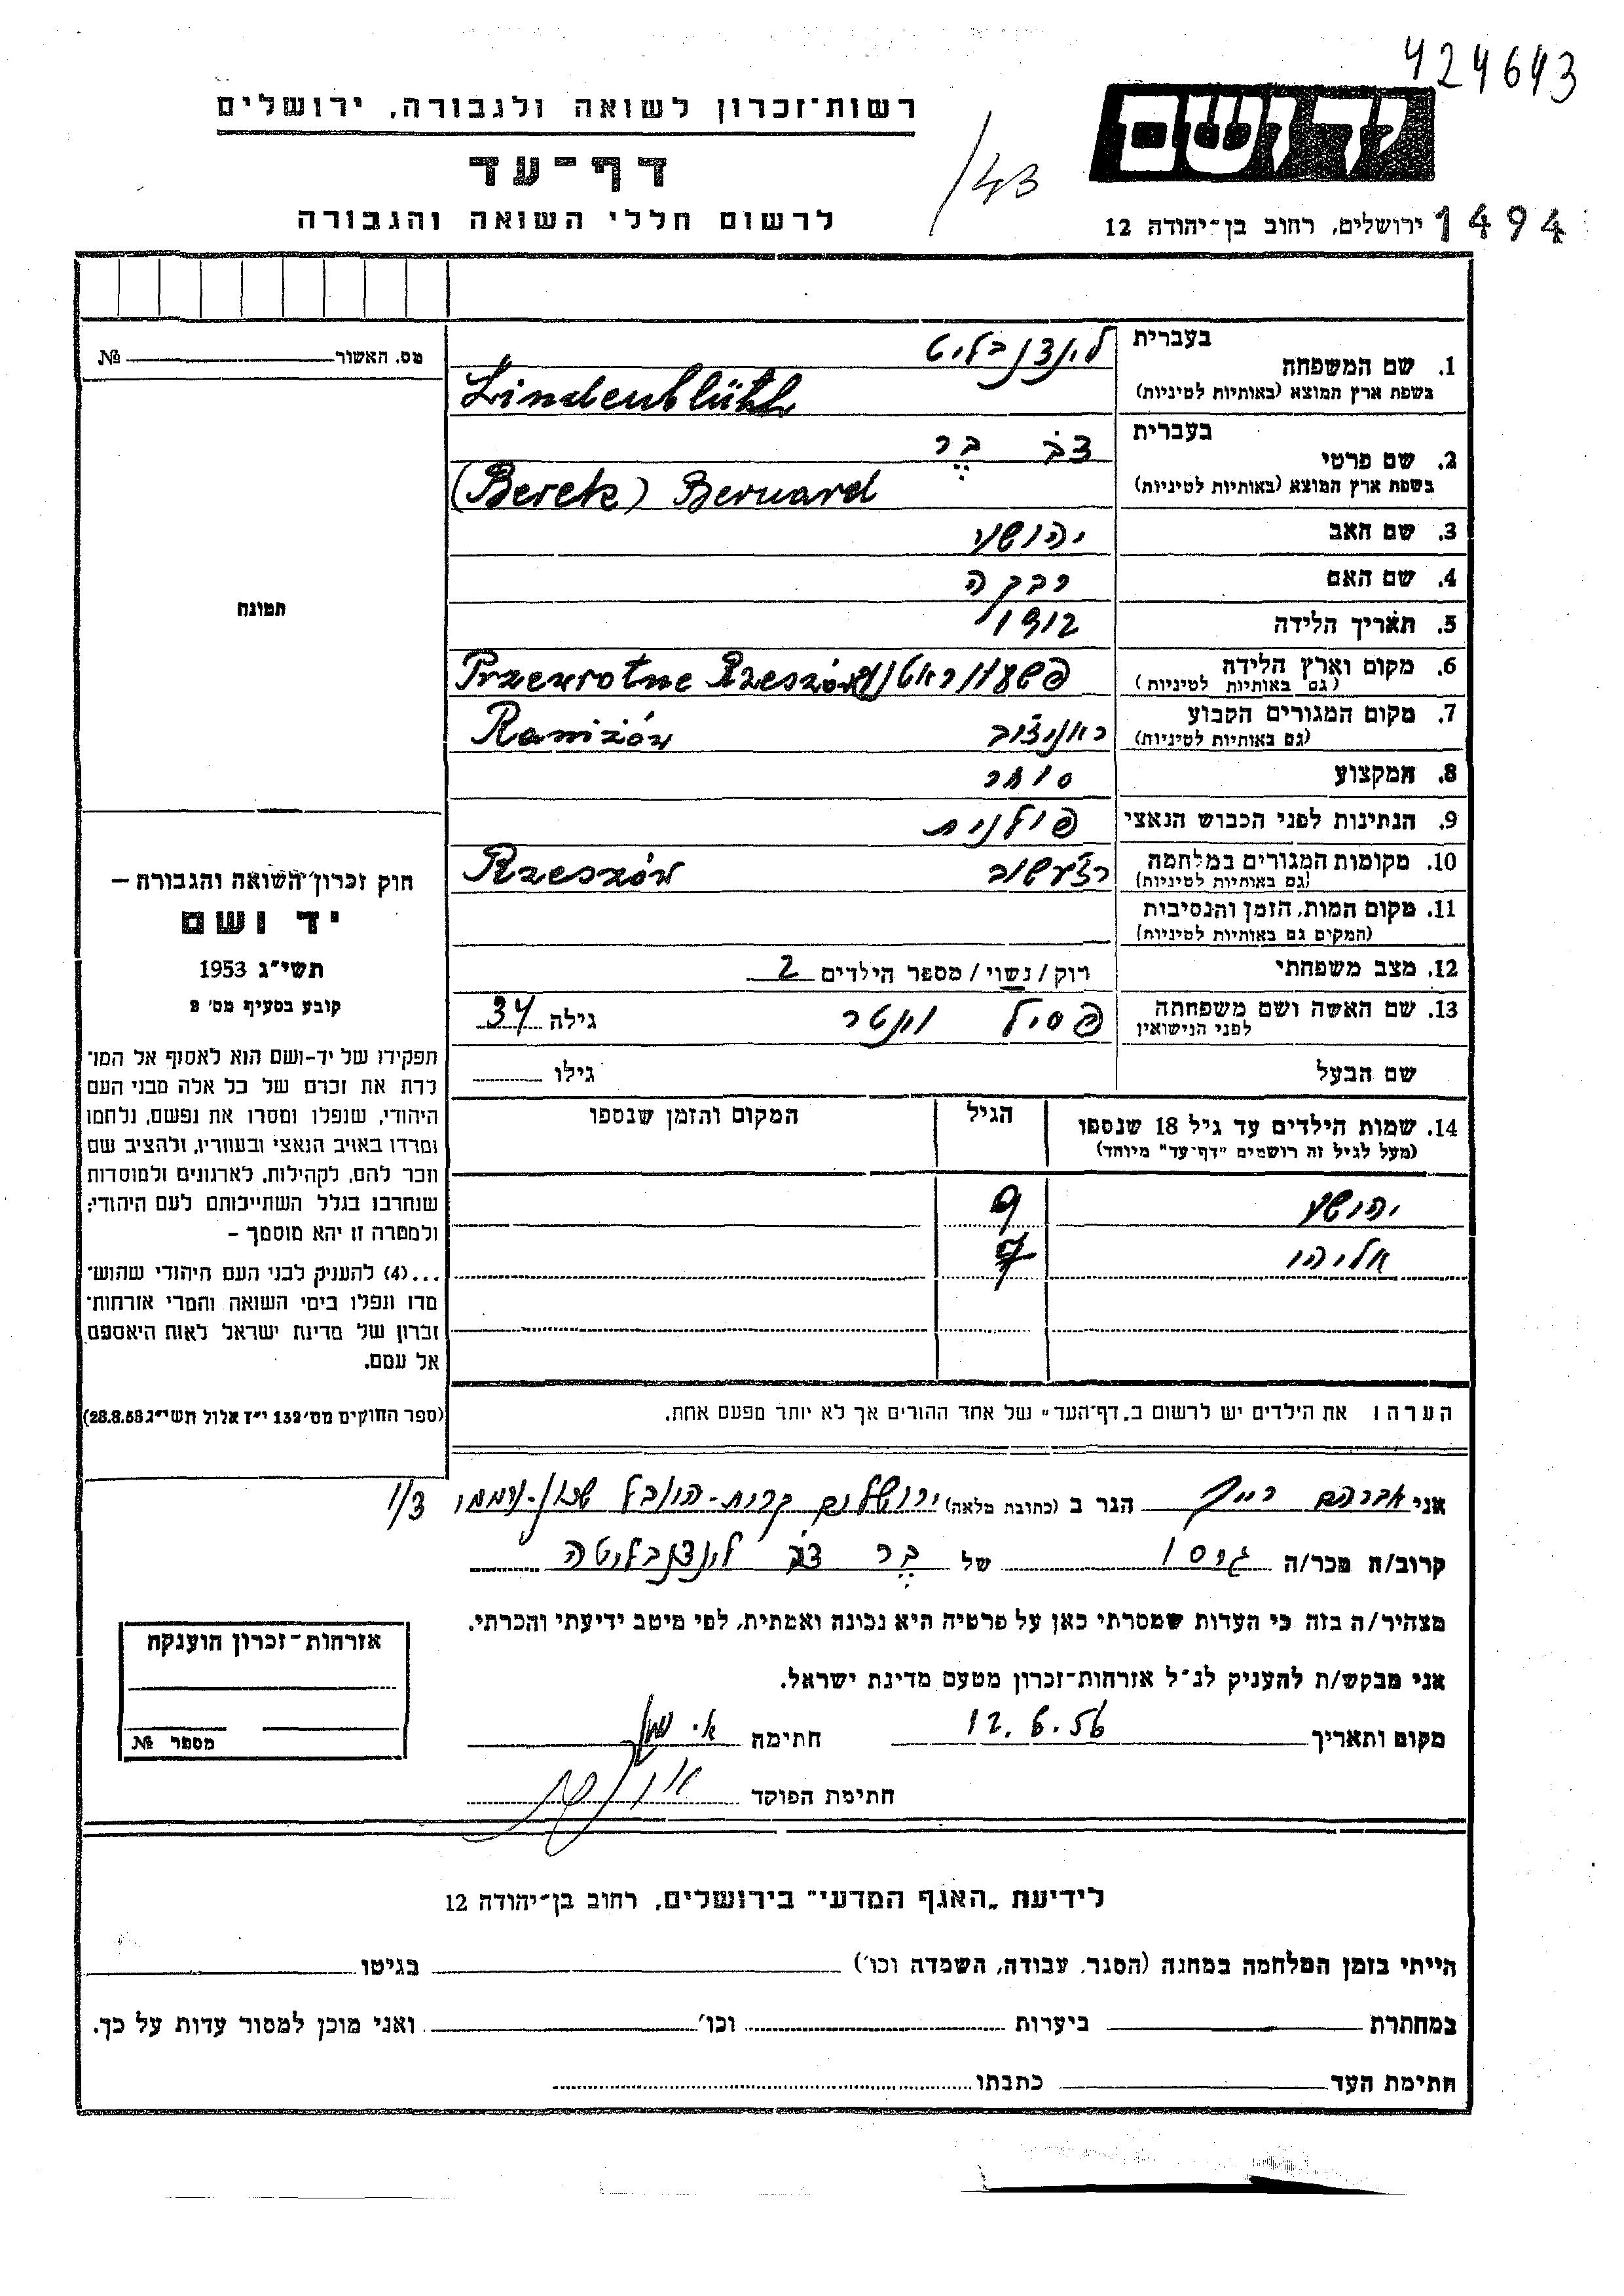 424643
רשות־זכרון לשואה ולגבורה, ירושלים
דף־עד
לרשום חללי השואה והגבורה
/43
יד ושם
ירושלים, רחוב בן־יהודה 12
1494
מס. האשור № 
1. שם המשפחה
בעברית לינדנבליט
בשפת ארץ המוצא (באותיות לטיניות) Lindenblüth
2. שם פרטי
בעברית דב בר
בשפת ארץ המוצא (באותיות לטיניות) (Berek) Bernard
3. שם האב יהושע
4. שם האם רבקה
5. תאריך הלידה 1912
6. מקום וארץ הלידה
(גם באותיות לטיניות) Przewrotne Rzeszów
7. מקום המגורים הקבוע ראניזוב
(גם באותיות לטיניות) Raniżów
8. המקצוע סוחר
9. הנתינות לפני הכבוש הנאצי פולנית
10. מקומות המגורים במלחמה
(גם באותיות לטיניות) Rzeszów
11. מקום המות, הזמן והנסיבות
(המקום גם באותיות לטיניות)
12. מצב משפחתי רוק/נשוי/מספר הילדים 2
13. שם האשה ושם משפחתה
לפני הנישואין פסיל וינטר גילה 34
שם הבעל גילו
14. שמות הילדים עד גיל 18 שנספו הגיל המקום והזמן שנספו
(מעל לגיל זה רושמים "דף־עד" מיוחד)
יהושע 9
אליהו 7
הערה: את הילדים יש לרשום ב„דף־העד" של אחד ההורים אך לא יותר מפעם אחת.
תמונה
חוק זכרון השואה והגבורה –
יד ושם
תשי"ג 1953
קובע בסעיף מס' 2
תפקידו של יד-ושם הוא לאסוף אל המו־
לדת את זכרם של כל אלה מבני העם
היהודי, שנפלו ומסרו את נפשם, נלחמו
ומרדו באויב הנאצי ובעוזריו, ולהציב שם
וזכר להם, לקהילות, לארגונים ולמוסדות
שנחרבו בגלל השתייכותם לעם היהודי;
ולמטרה זו יהא מוסמך –
...(4) להעניק לבני העם היהודי שהוש־
מדו ונפלו בימי השואה והמרי אזרחות־
זכרון של מדינת ישראל לאות היאספם
אל עמם.
(ספר החוקים מס' 132 י"ז אלול תשי"ג 28.8.53)
אני אברהם הגר ב (כתובת מלאה) ירושלים קרית-היובל 1/3
קרוב/ה מכר/ה גיסו של בר דב לינדנבליטה
מצהיר/ה בזה כי העדות שמסרתי כאן על פרטיה היא נכונה ואמתית, לפי מיטב ידיעתי והכרתי.
אני מבקש/ת להעניק לנ"ל אזרחות־זכרון מטעם מדינת ישראל.
מקום ותאריך 12.6.56 חתימה
חתימת הפוקד
אזרחות־זכרון הוענקה
מספר №
לידיעת „האגף המדעי" בירושלים, רחוב בן־יהודה 12
הייתי בזמן המלחמה במחנה (הסגר, עבודה, השמדה וכו') בגיטו
במחתרת ביערות וכו' ואני מוכן למסור עדות על כך.
חתימת העד כתבתו